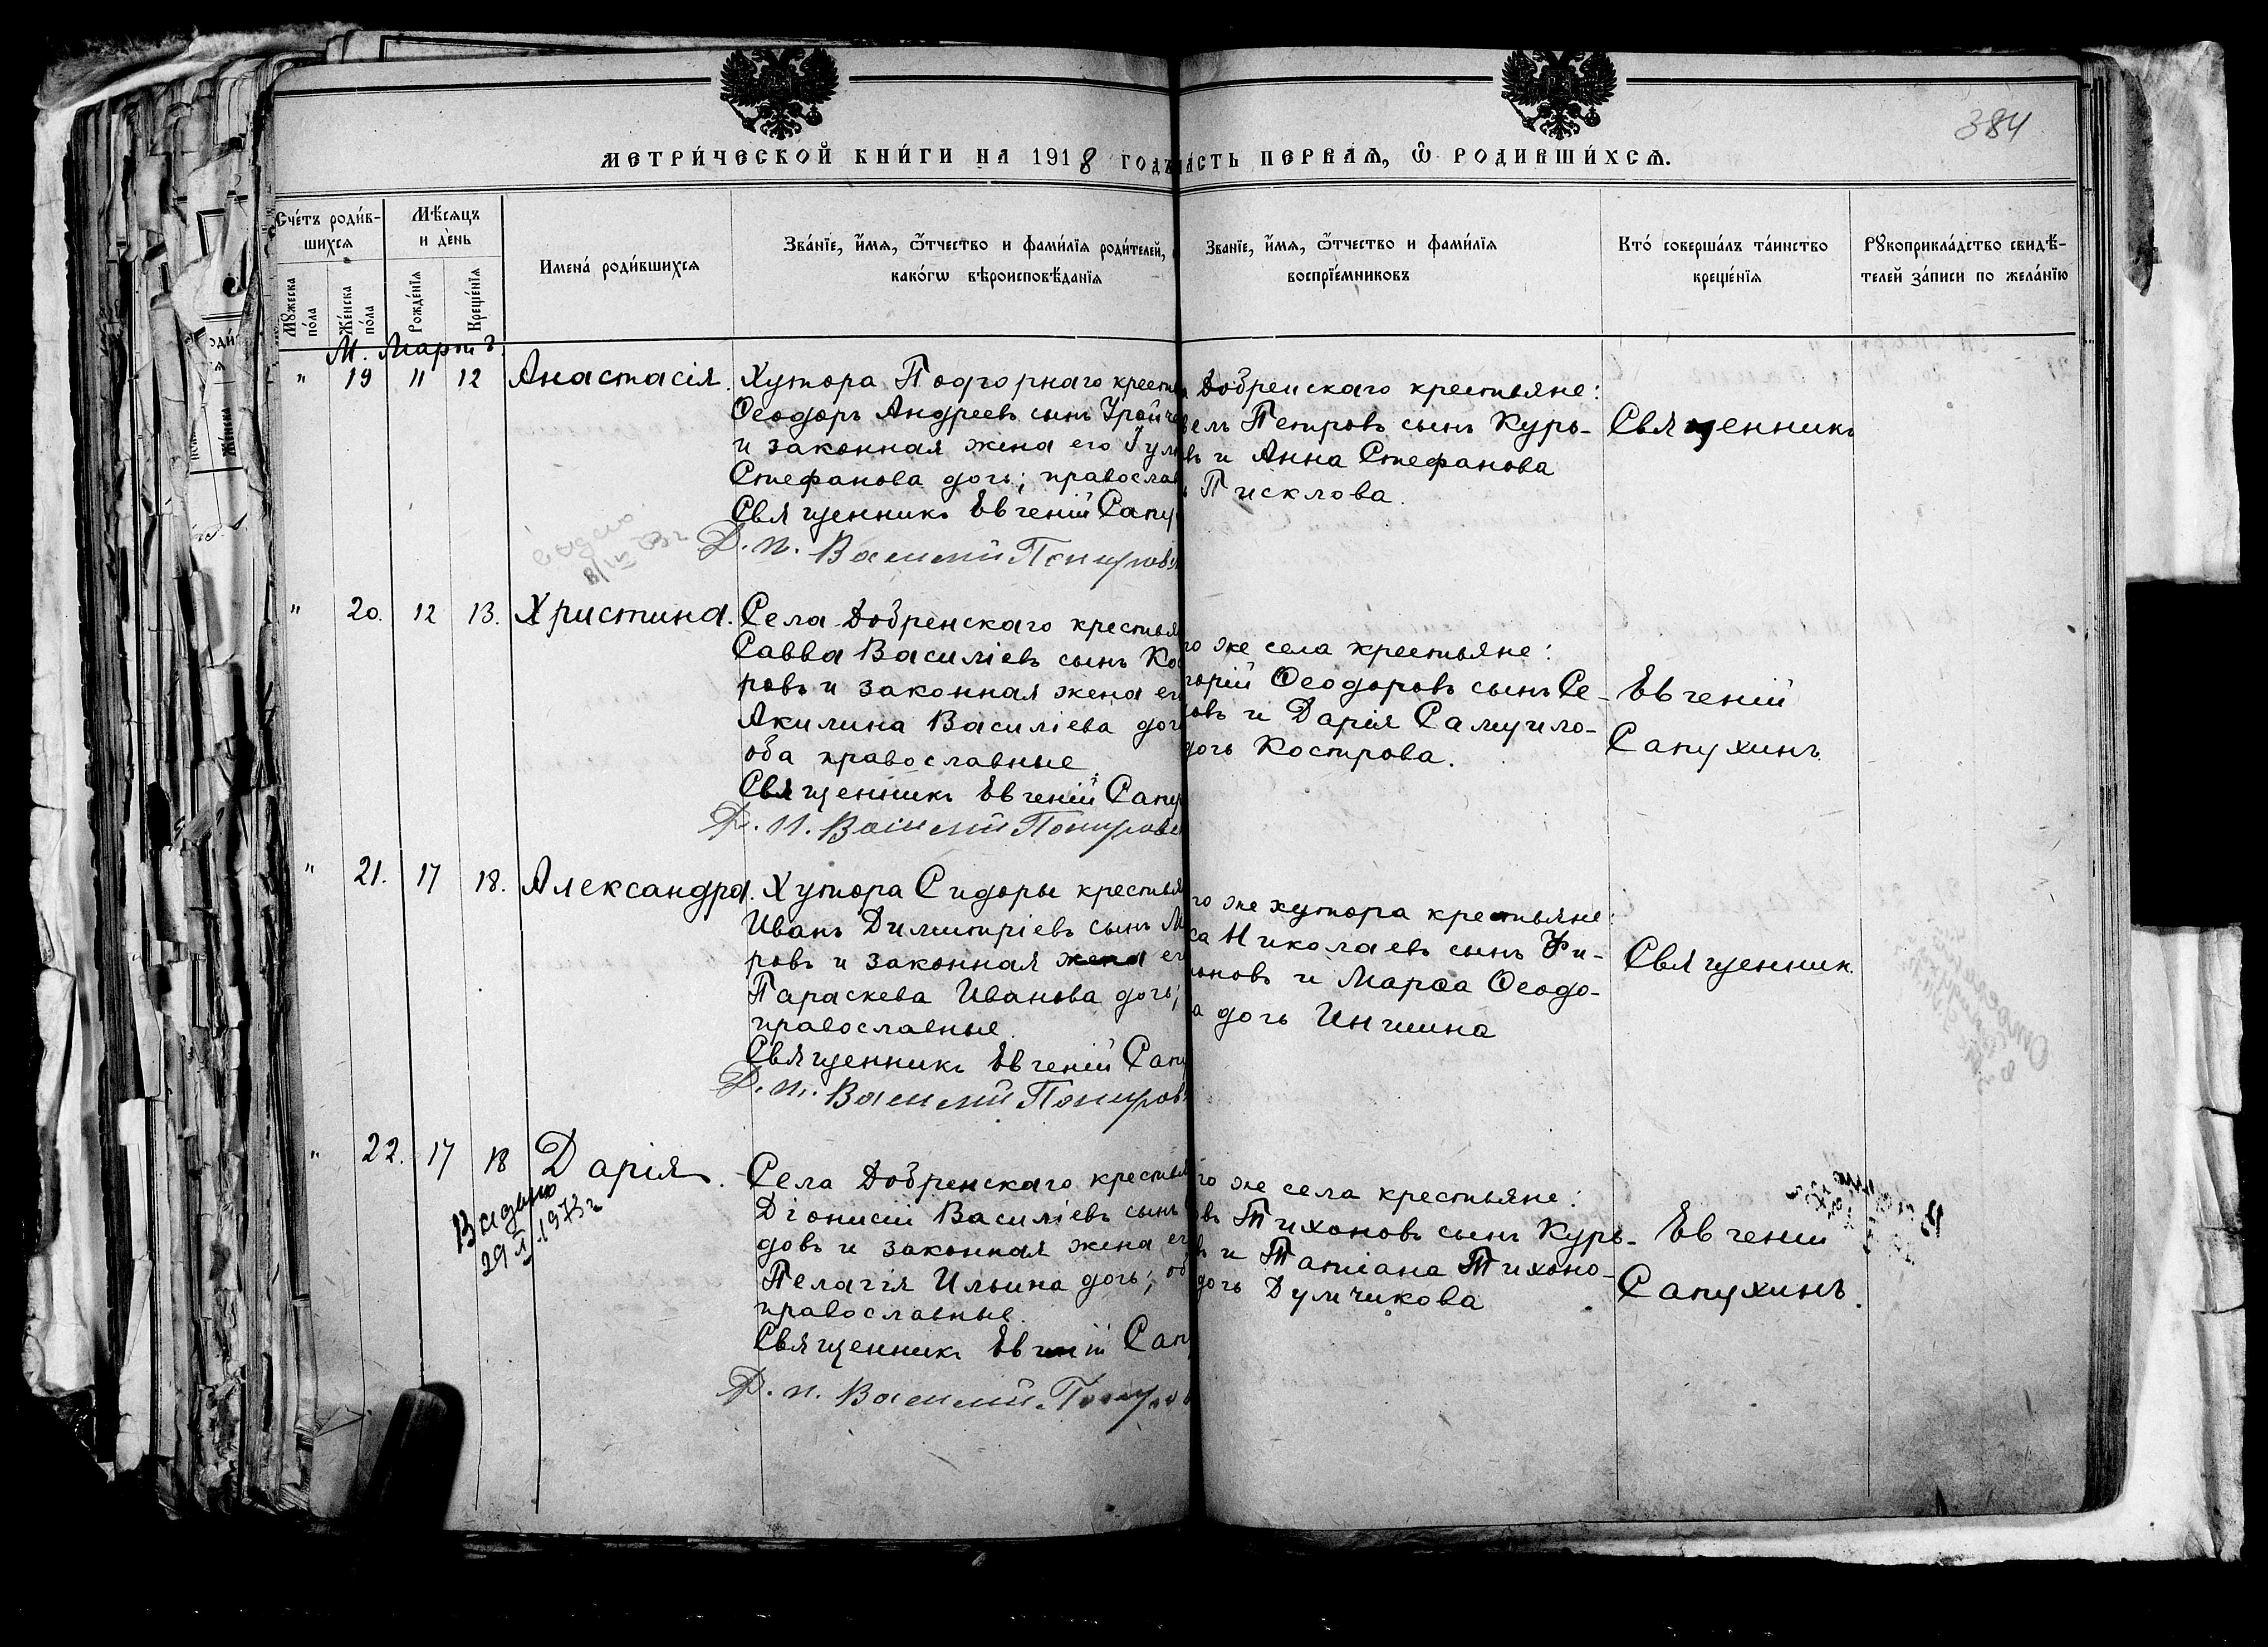 384
МЕТРИ́ЧЕСКОЙ КНИ́ГИ НА 1918 ГОДЪ
ЧА́СТЬ ПЕРВАѦ, Ѡ РОДИВШИ́ХСѦ.
Сче́тъ роди́в-
шихсѧ
Мꙋ́жеска по́ла
Же́нска по́ла
Мѣ́сѧцъ
и де́нь
Рожде́нїѧ
Креще́нїѧ
Имена́ роди́вшихсѧ
Зва́нїе, и́мѧ, ѻ́тчество и фами́лїѧ роди́телей, и
како́гѡ вѣроисповѣ́данїѧ
Зва́нїе, и́мѧ, ѻ́тчество и фами́лїѧ
воспрїе́мниковъ
Кто́ соверша́лъ та́инство
креще́нїѧ
Рꙋкоприкла́дство свидѣ́-
телей за́писи по жела́нїю
М. Мартъ.
" 19 11 12 Анастасія.
Хутора Подгорнаго крестья
Ѳеодоръ Андреевъ сынъ
и законная жена его
Стефанова дочь; православ
Священникъ Евгеній Сапу
Д. п. Василій
Добренскаго крестьяне:
велъ Петровъ сынъ Курь-
въ и Анна Стефанова
Писклова.
Священникъ
" 20. 12 13. Христина.
Села Добренскаго крестья
Савва Василіевъ сынъ Кос
ровъ и законная жена ег
Акилина Василіева доч
оба православные.
Священникъ Евгеній Сапу
Д. п. Василій
го же села крестьяне:
горій Ѳеодоровъ сынъ Се-
овъ и Дарія Самуило-
дочь Кострова.
Евгеній
Сапухинъ.
" 21. 17 18. Александра.
Хутора Сидоры крестья
Иванъ Димитріевъ сынъ М
ровъ и законная жена ег
Параскева Иванова дочь;
православные.
Священникъ Евгеній Сапу
Д. п. Василій
го же хутора крестьяне:
са Николаевъ сынъ Фи-
оновъ и Марѳа Ѳеодо-
а дочь Иншина
Священник.
" 22. 17 18 Дарія.
Выдано
29 1973 г
Села Добренскаго крестья
Діонисій Василіевъ сынъ
довъ и законная жена ег
Пелагія Ильина дочь; об
православные.
Священникъ Евгеній Сап
Д. п. Василій
го же села крестьяне:
въ Тихоновъ сынъ Курь-
въ и Татіана Тихоно-
дочь Думчикова
Евгеній
Сапухинъ.